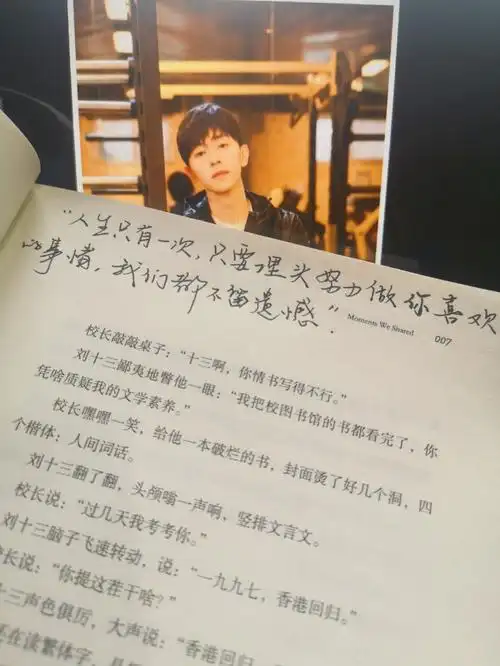 “人生只有一次，只要埋头努力做你喜欢
的事情，我们都不留遗憾”.
Moments We Shared
007
校长敲敲桌子：“十三啊，你情书写得不行。”
刘十三鄙夷地瞥他一眼：“我把校图书馆的书都看完了，你
凭啥质疑我的文学素养。”
校长嘿嘿一笑，给他一本破烂的书，封面烫了好几个洞，四
个楷体：人间词话。
刘十三翻了翻，头颅嗡一声响，竖排文言文。
校长说：“过几天我考考你。”
刘十三脑子飞速转动，说：“一九九七，香港回归。”
长说：“你提这茬干啥？”
十三声色俱厉，大声说：“香港回归
还在读繁体字，